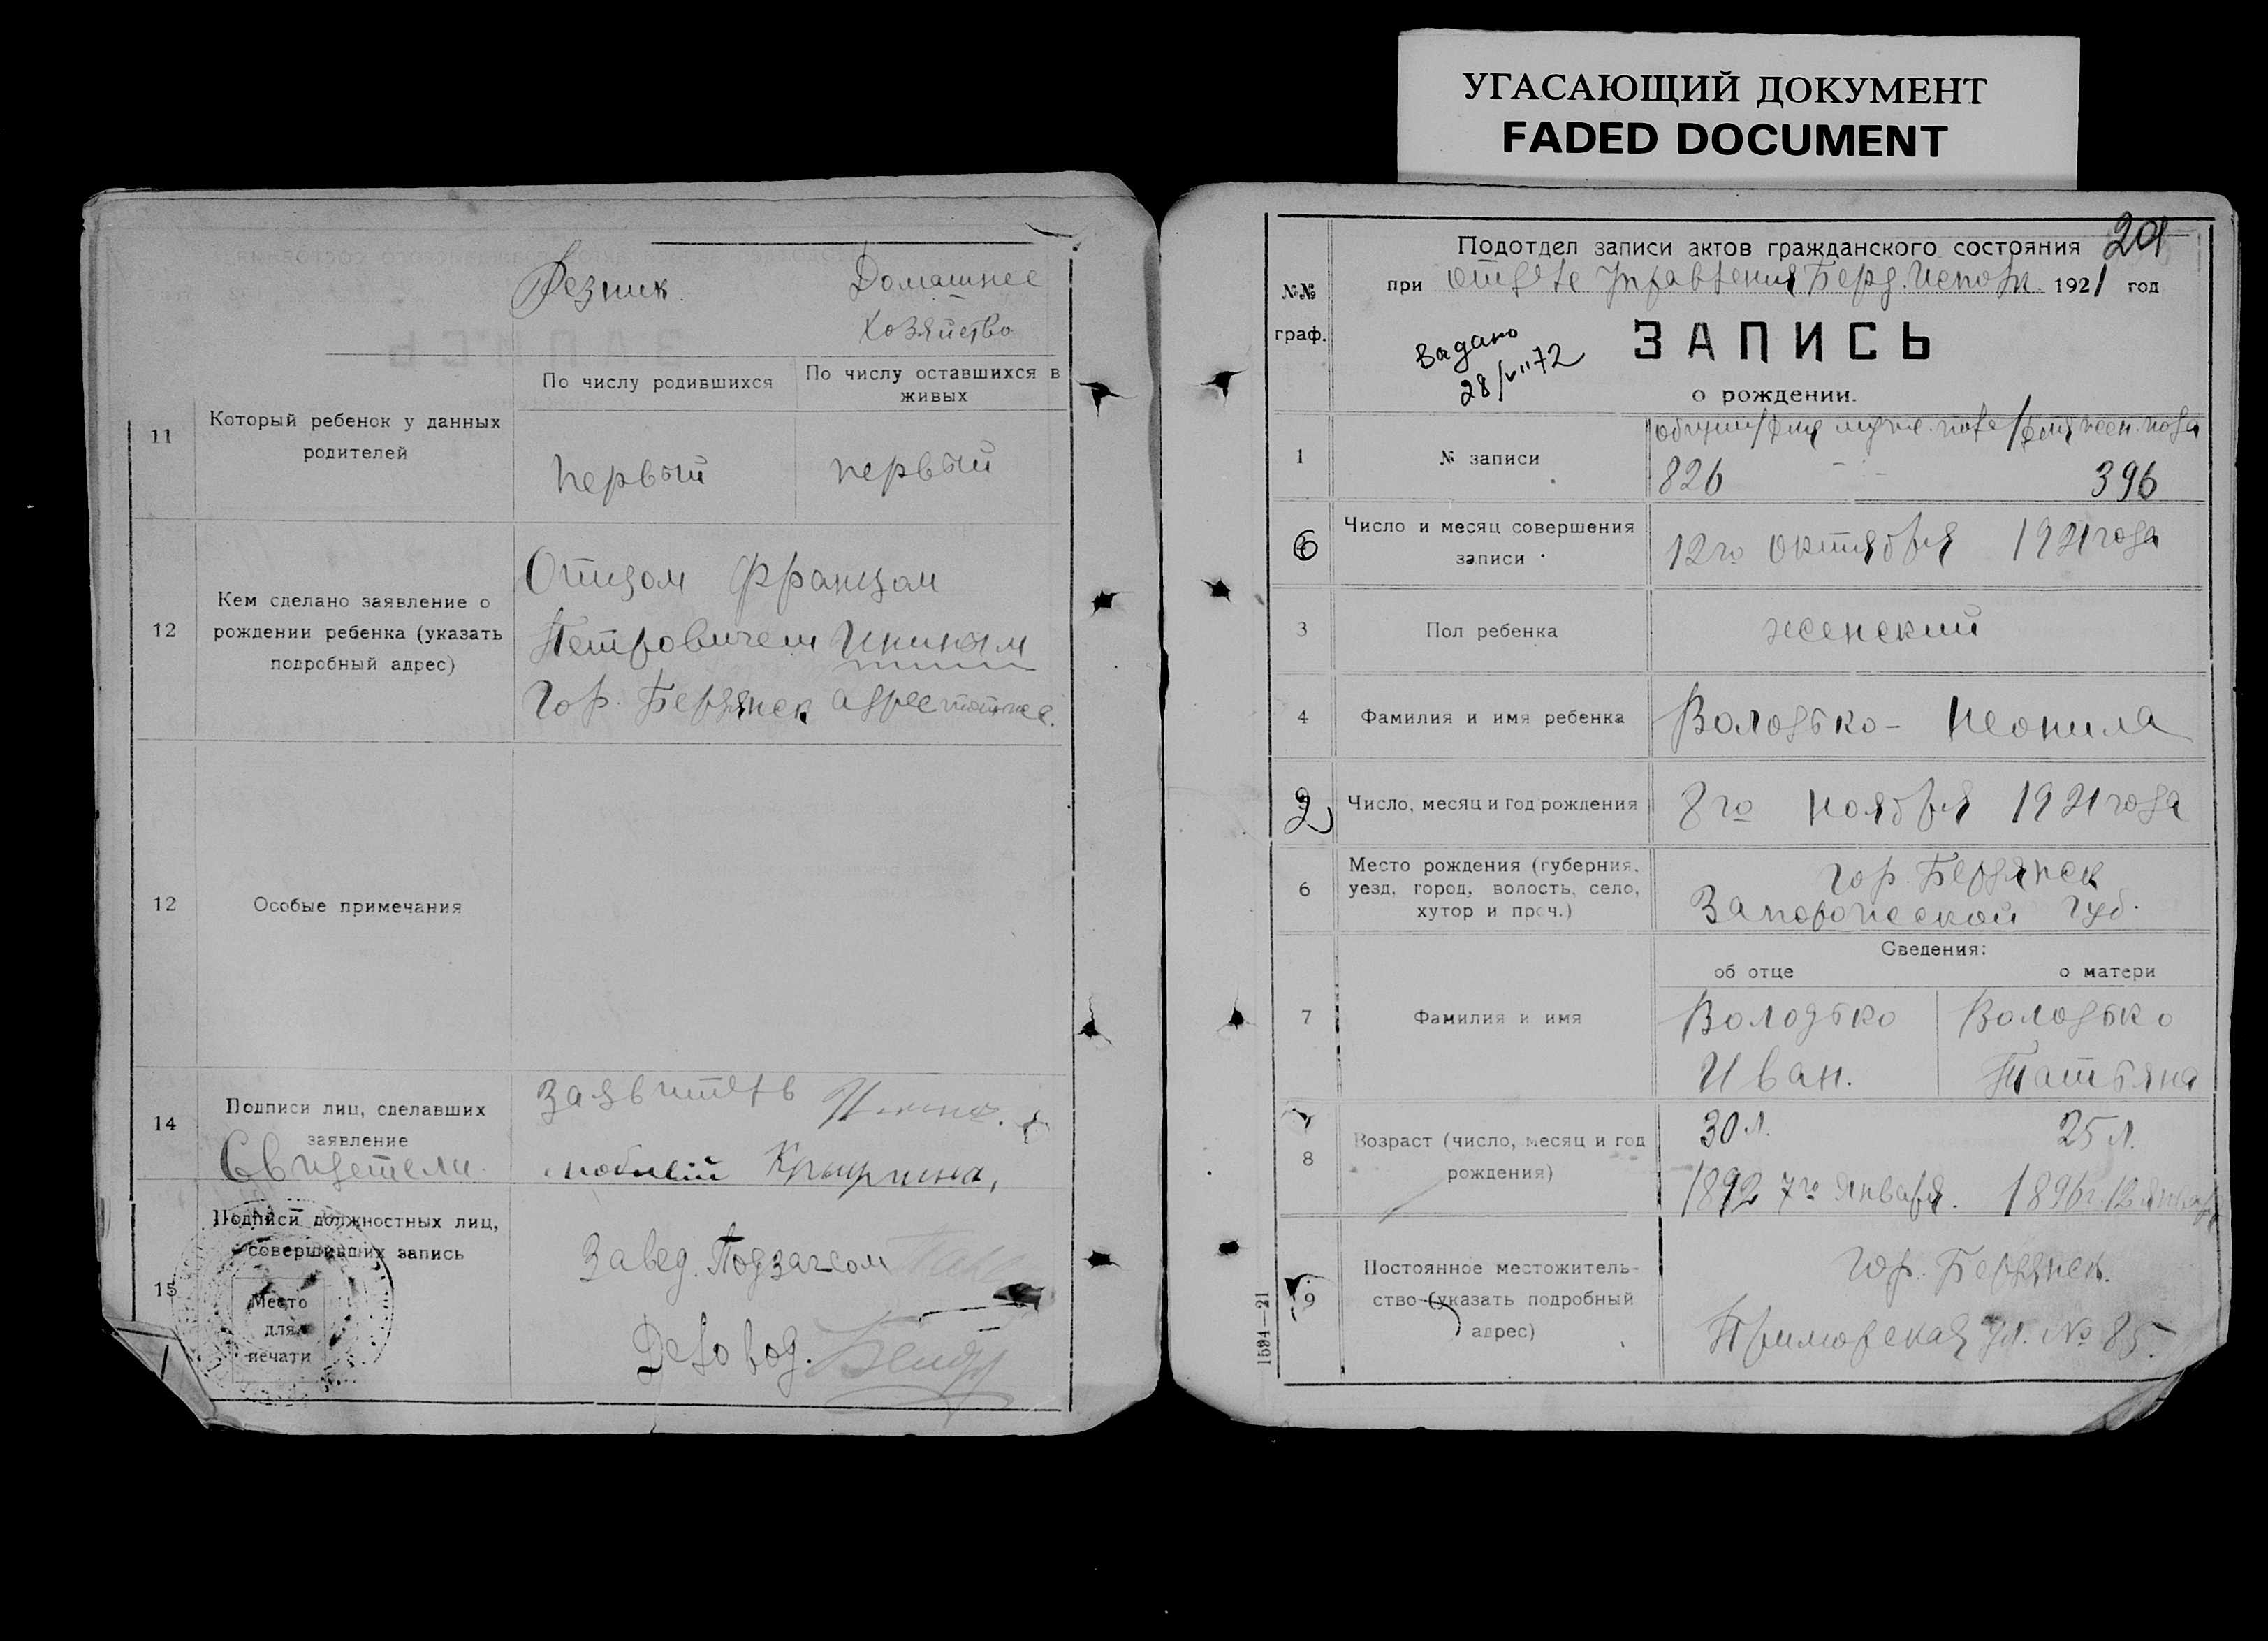 УГАСАЮЩИЙ ДОКУМЕНТ
FADED DOCUMENT
Резник. Домашнее
хозяйство
По числу родившихся По числу оставшихся в живых
11 Который ребенок у данных родителей первый первый
12 Кем сделано заявление о рождении ребенка (указать подробный адрес)
Отцом Францом
Петровичем
Гор. Бердянск адрес
12 Особые примечания
14 Подписи лиц, сделавших заявление
Заявитель
Свидетели
15 Подписи должностных лиц, совершивших запись
Завед. Подзагсом
Деловод.
Место
для
печати
201
Подотдел записи актов гражданского состояния
при отделе Управления Берд. 1921 год
№№ граф.
28/VII 72
ЗАПИСЬ
о рождении.
1 № записи
826 - - 396
6 Число и месяц совершения записи 12го октября 1921 года
3 Пол ребенка женский
4 Фамилия и имя ребенка Володько - Неонила
2 Число, месяц и год рождения 8го ноября 1921 года
6 Место рождения (губерния, уезд, город, волость, село, хутор и проч.)
гор. Бердянск
Запорожской губ.
Сведения:
об отце о матери
7 Фамилия и имя
Володько Володько
Иван. Татьяна
8 Возраст (число, месяц и год рождения)
30 л. 25 л.
1892 7го января. 1896г.
9 Постоянное местожительство (указать подробный адрес)
гор. Бердянск.
Приморская ул. № 85.
1594—21